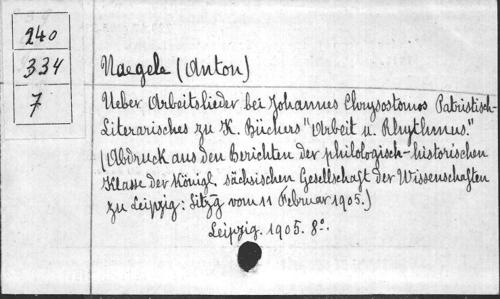 240
334
7
Naegele (Anton)
Ueber Arbeitslieder bei Johannes Chrysostomos Patristisch-
Literarisches zu K. Büchers "Arbeit u. Rhythmus."
(Abdruck aus den Berichten der philologisch-historischen
Klasse der Königl. sächsischen Gesellschaft der Wissenschaften
zu Leipzig: Sitzg vom 11 Februar 1905.)
Leipzig. 1905. 8º.